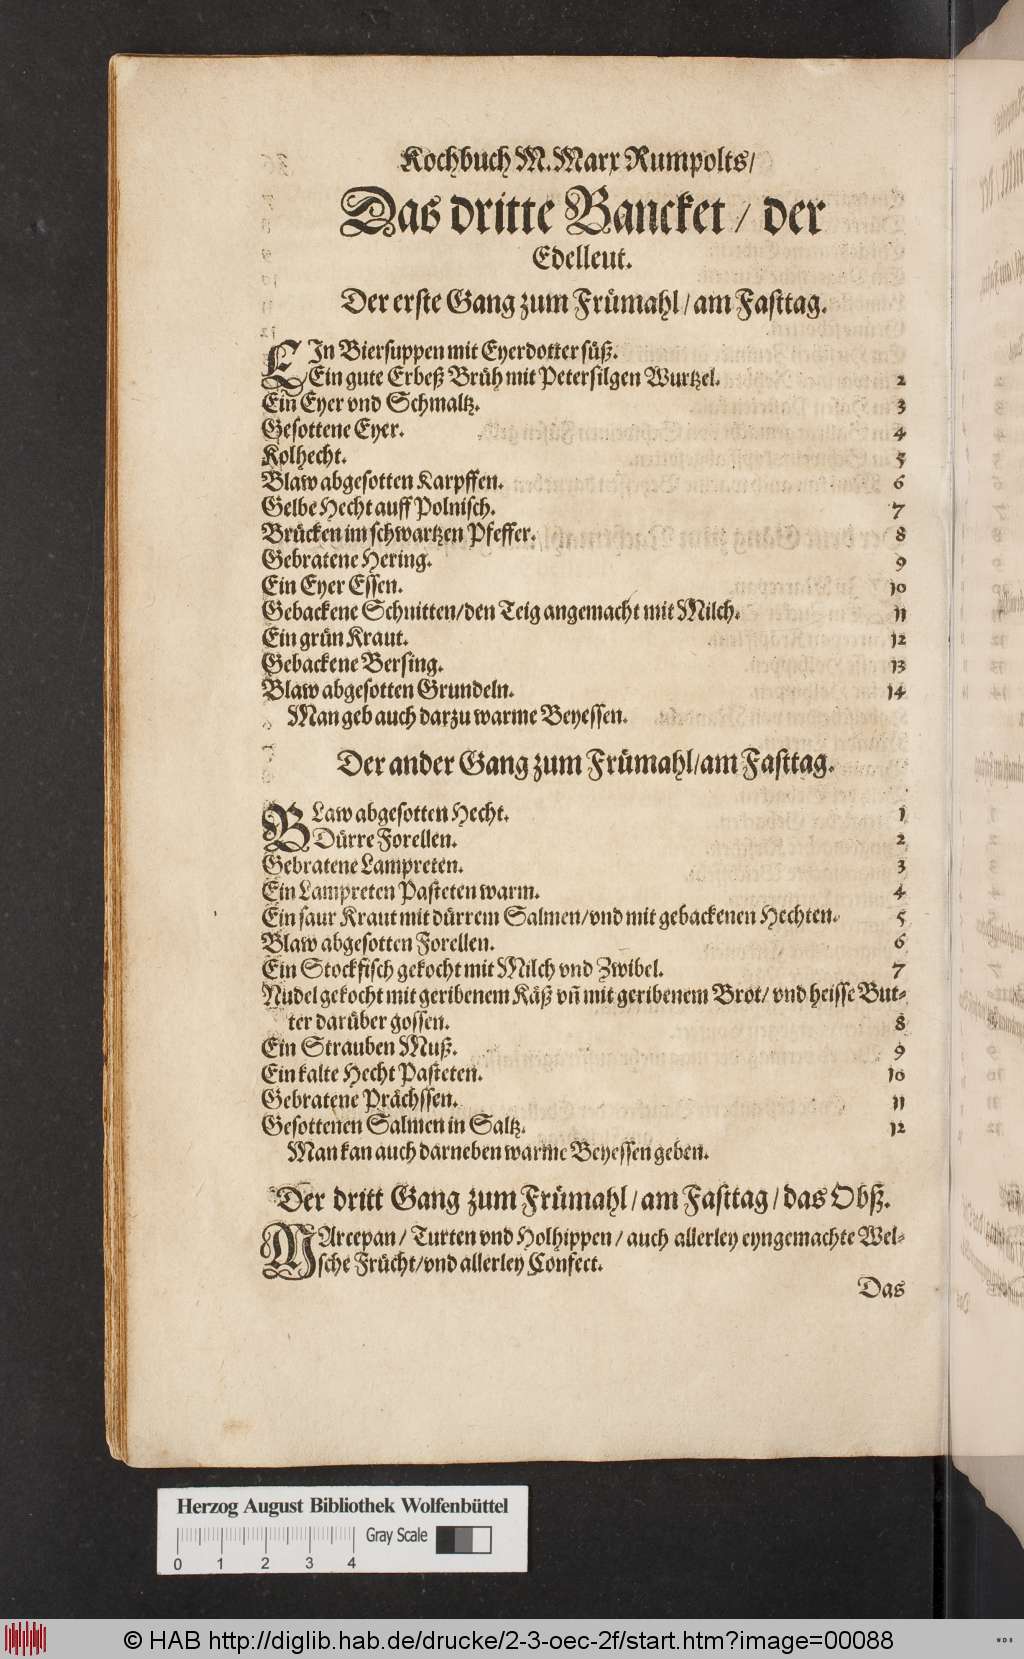 Kochbuch M. Marx Rumpolts/
Das dritte Bancket / der
Edelleut.
Der erste Gang zum Frümahl / am Fasttag.
EIn Biersuppen mit Eyerdotter süß.
Ein gute Erbeß Brüh mit Petersilgen Wurtzel. 2
Ein Eyer vnd Schmaltz. 3
Gesottene Eyer. 4
Kolhecht. 5
Blaw abgesotten Karpffen. 6
Gelbe Hecht auff Polnisch. 7
Brücken im schwartzen Pfeffer. 8
Gebratene Hering. 9
Ein Eyer Essen. 10
Gebackene Schnitten/den Teig angemacht mit Milch. 11
Ein grün Kraut. 12
Gebackene Bersing. 13
Blaw abgesotten Grundeln. 14
Man geb auch darzu warme Beyessen.
Der ander Gang zum Frümahl/am Fasttag.
BLaw abgesotten Hecht. 1
Dürre Forellen. 2
Gebratene Lampreten. 3
Ein Lampreten Pasteten warm. 4
Ein saur Kraut mit dürrem Salmen/vnd mit gebackenen Hechten. 5
Blaw abgesotten Forellen. 6
Ein Stockfisch gekocht mit Milch vnd Zwibel. 7
Nudel gekocht mit geribenem Käß vñ mit geribenem Brot/ vnd heisse But-
ter darüber gossen. 8
Ein Strauben Muß. 9
Ein kalte Hecht Pasteten. 10
Gebratene Prächssen. 11
Gesottenen Salmen in Saltz. 12
Man kan auch darneben warme Beyessen geben.
Der dritt Gang zum Frümahl / am Fasttag / das Obß.
MArcepan / Turten vnd Holhippen / auch allerley eyngemachte Wel-
sche Frücht/vnd allerley Confect.
Das
Herzog August Bibliothek Wolfenbüttel
Gray Scale
0 1 2 3 4
© HAB http://diglib.hab.de/drucke/2-3-oec-2f/start.htm?image=00088